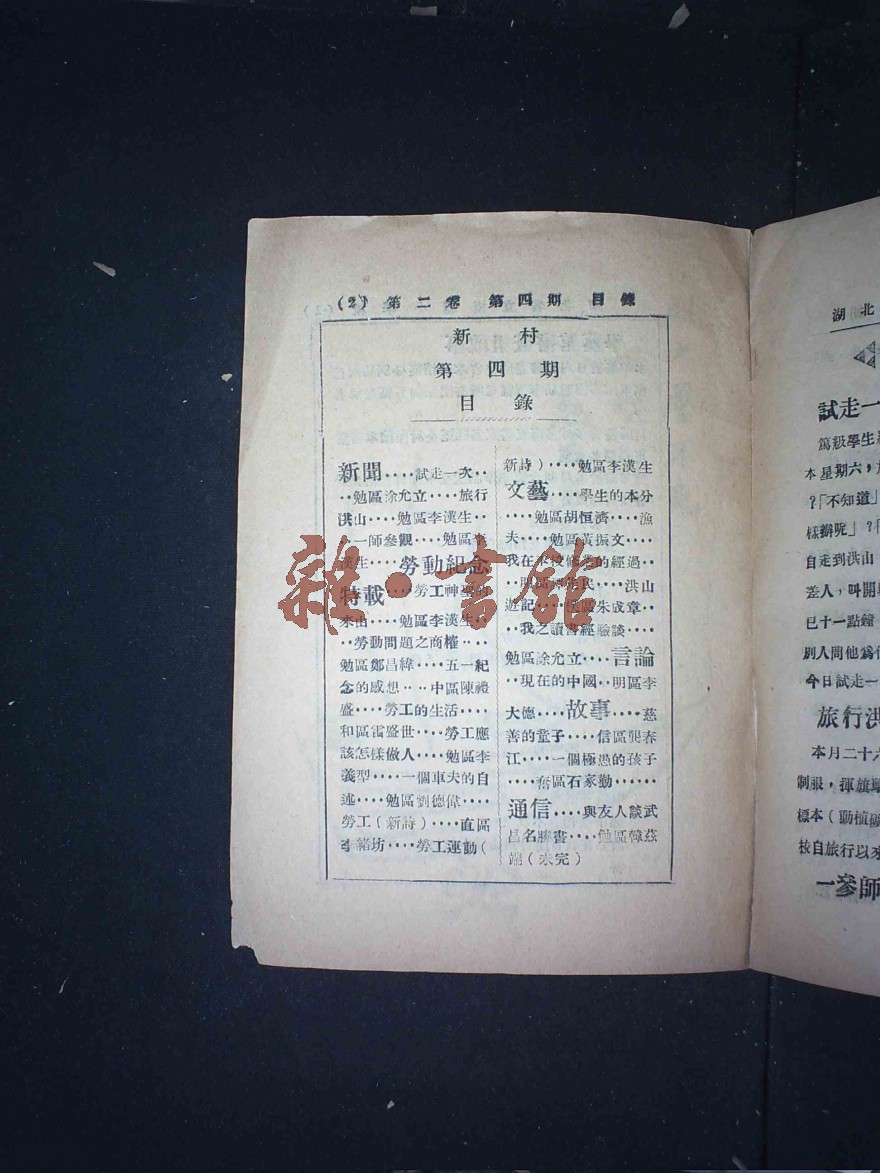 (2) 第二卷 第四期 目錄
新村
第四期
目錄
新聞‥‥試走一次‥
‥勉區涂允立‥‥旅行
洪山‥‥勉區李漢生‥
‥一師參觀‥‥勉區李
漢生‥‥勞動紀念
特載‥‥勞工神聖的
來由‥‥勉區李漢生‥
‥勞動問題之商榷‥‥
勉區鄭昌緯‥‥五一紀
念的感想‥‥中區陳禮
盛‥‥勞工的生活‥‥
和區雷盛世‥‥勞工應
該怎樣做人‥‥勉區李
義型‥‥一個車夫的自
述‥‥勉區劉德偉‥‥
勞工(新詩)‥‥直區
諸坊‥‥勞工運動(
新詩)‥‥勉區李漢生
文藝‥‥學生的本分
‥‥勉區胡恒濟‥‥漁
夫‥‥勉區黃振文‥‥
我在本校修養的經過‥
民‥‥洪山
遊記‥‥區朱成章‥‥
‥我之讀書經驗談‥‥
勉區涂允立‥‥言論
‥現在的中國‥明區李
大德‥‥故事‥‥慈
善的童子‥‥信區龔春
江‥‥一個極愚的孩子
‥‥奮區石家勤‥‥‥
通信‥‥與友人談武
昌名勝書‥‥勉區韓茲
瑞(未完)
雜·書館
湖北
試走一
篤級學生
本星期六，
?「不知道」
樣辦呢」?「
自走到洪山
差人，叫開
已十一點鐘
別人問他爲
今日試走一
旅行洪
本月二十六
制服，揮旗
標本(動植礦
校自旅行以來
一參師